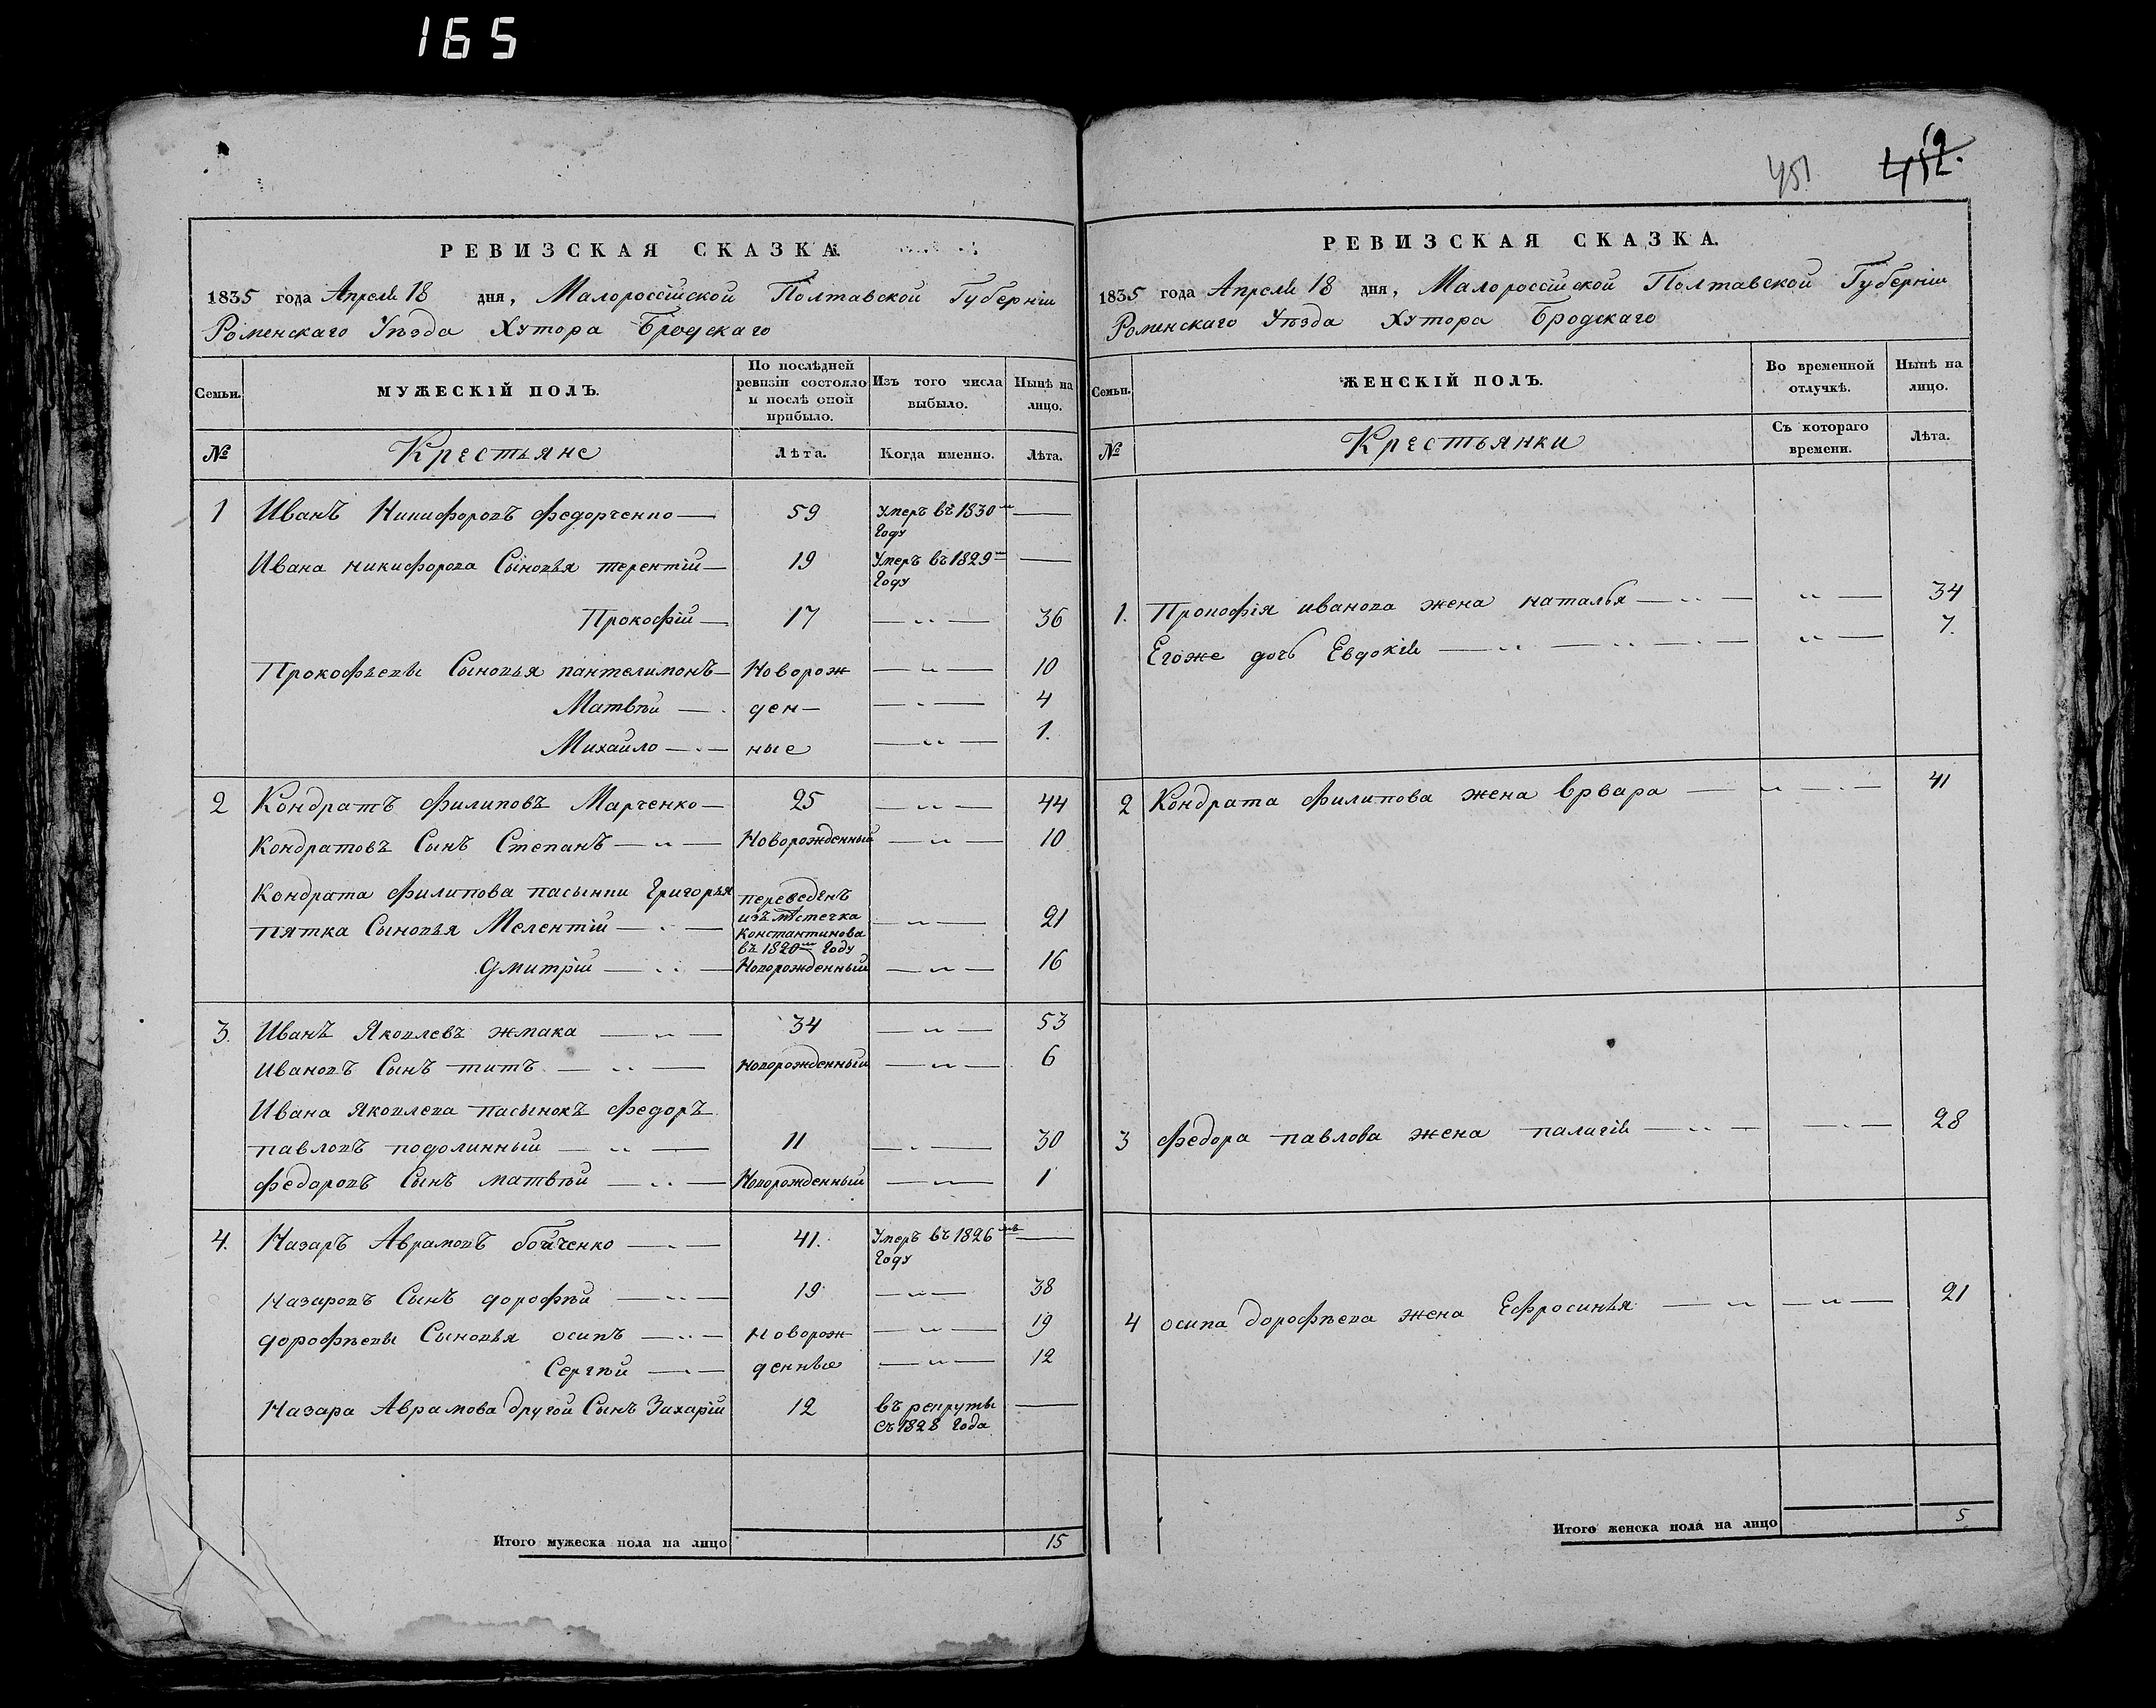 165
451 452.
РЕВИЗСКАЯ СКАЗКА.
1835 года Апреля 18 дня, Малороссійской Полтавской Губерніи
Роменскаго Уѣзда Хутора Бродскаго
Семьи. МУЖЕСКІЙ ПОЛЪ. По послѣдней ревизіи состояло и послѣ оной прибыло. Изъ того числа выбыло. Нынѣ на лицо.
№ Крестьяне Лѣта. Когда именно. Лѣта.
1 Иванъ Никифоровъ Федорченко — 59 Умеръ въ 1830м Году —
Ивана никифорова Сыновья терентій — 19 Умеръ въ 1829м Году —
Прокофій — 17 — „ — 36
Прокофьевы Сыновья пантелимонъ — Новорож — „ — 10
Матвѣй — ден — — „ — 4
Михайло — „ — ные — „ — 1.
2 Кондратъ Филиповъ Марченко — 25 — „ — 44
Кондратовъ Сынъ Степанъ — „ — Новорожденный — „ — 10
Кондрата Филипова пасынки Григорья переведенъ
пятка Сыновья Мелентій — „ — изъ мѣстечка Константинова въ 1820м Году — „ — 21
Дмитрій — „ — Новорожденный — „ — 16
3. Иванъ Яковлевъ жмака — „ — 34 — „ — 53
Ивановъ Сынъ титъ — „ — Новорожденный — „ — 6
Ивана Яковлева пасынокъ Федоръ
павловъ подолинный — „ — 11 — „ — 30
Федоровъ Сынъ матвѣй — „ — Новорожденный — „ — 1
4. Назаръ Аврамовъ бойченко — „ — 41. Умеръ въ 1826мъ Году —
Назаровъ Сынъ дорофѣй — „ — 19 — „ — 38
дорофѣевы Сыновья осипъ — „ — Новорож — „ — 19
Сергѣй — „ — денные — „ — 12
Назара Аврамова другой Сынъ Захарій 12 въ рекруты съ 1828 Года —
Итого мужеска пола на лицо 15
РЕВИЗСКАЯ СКАЗКА.
1835 года Апреля 18 дня, Малороссійской Полтавской Губерніи
Роменскаго Уѣзда Хутора Бродскаго
Семьи. ЖЕНСКІЙ ПОЛЪ. Во временной отлучкѣ. Нынѣ на лицо.
№ Крестьянки Съ котораго времени. Лѣта.
1. Прокофія иванова жена наталья — „ — „ — 34
Егоже дочь Евдокія — „ — „ — „ — „ — 7.
2 Кондрата Филипова жена врвара — „ — „ — 41
3 Федора павлова жена палагія — „ — — „ — 28
4 осипа дорофѣева жена Ефросинья — „ — „ — 21
Итого женска пола на лицо 5